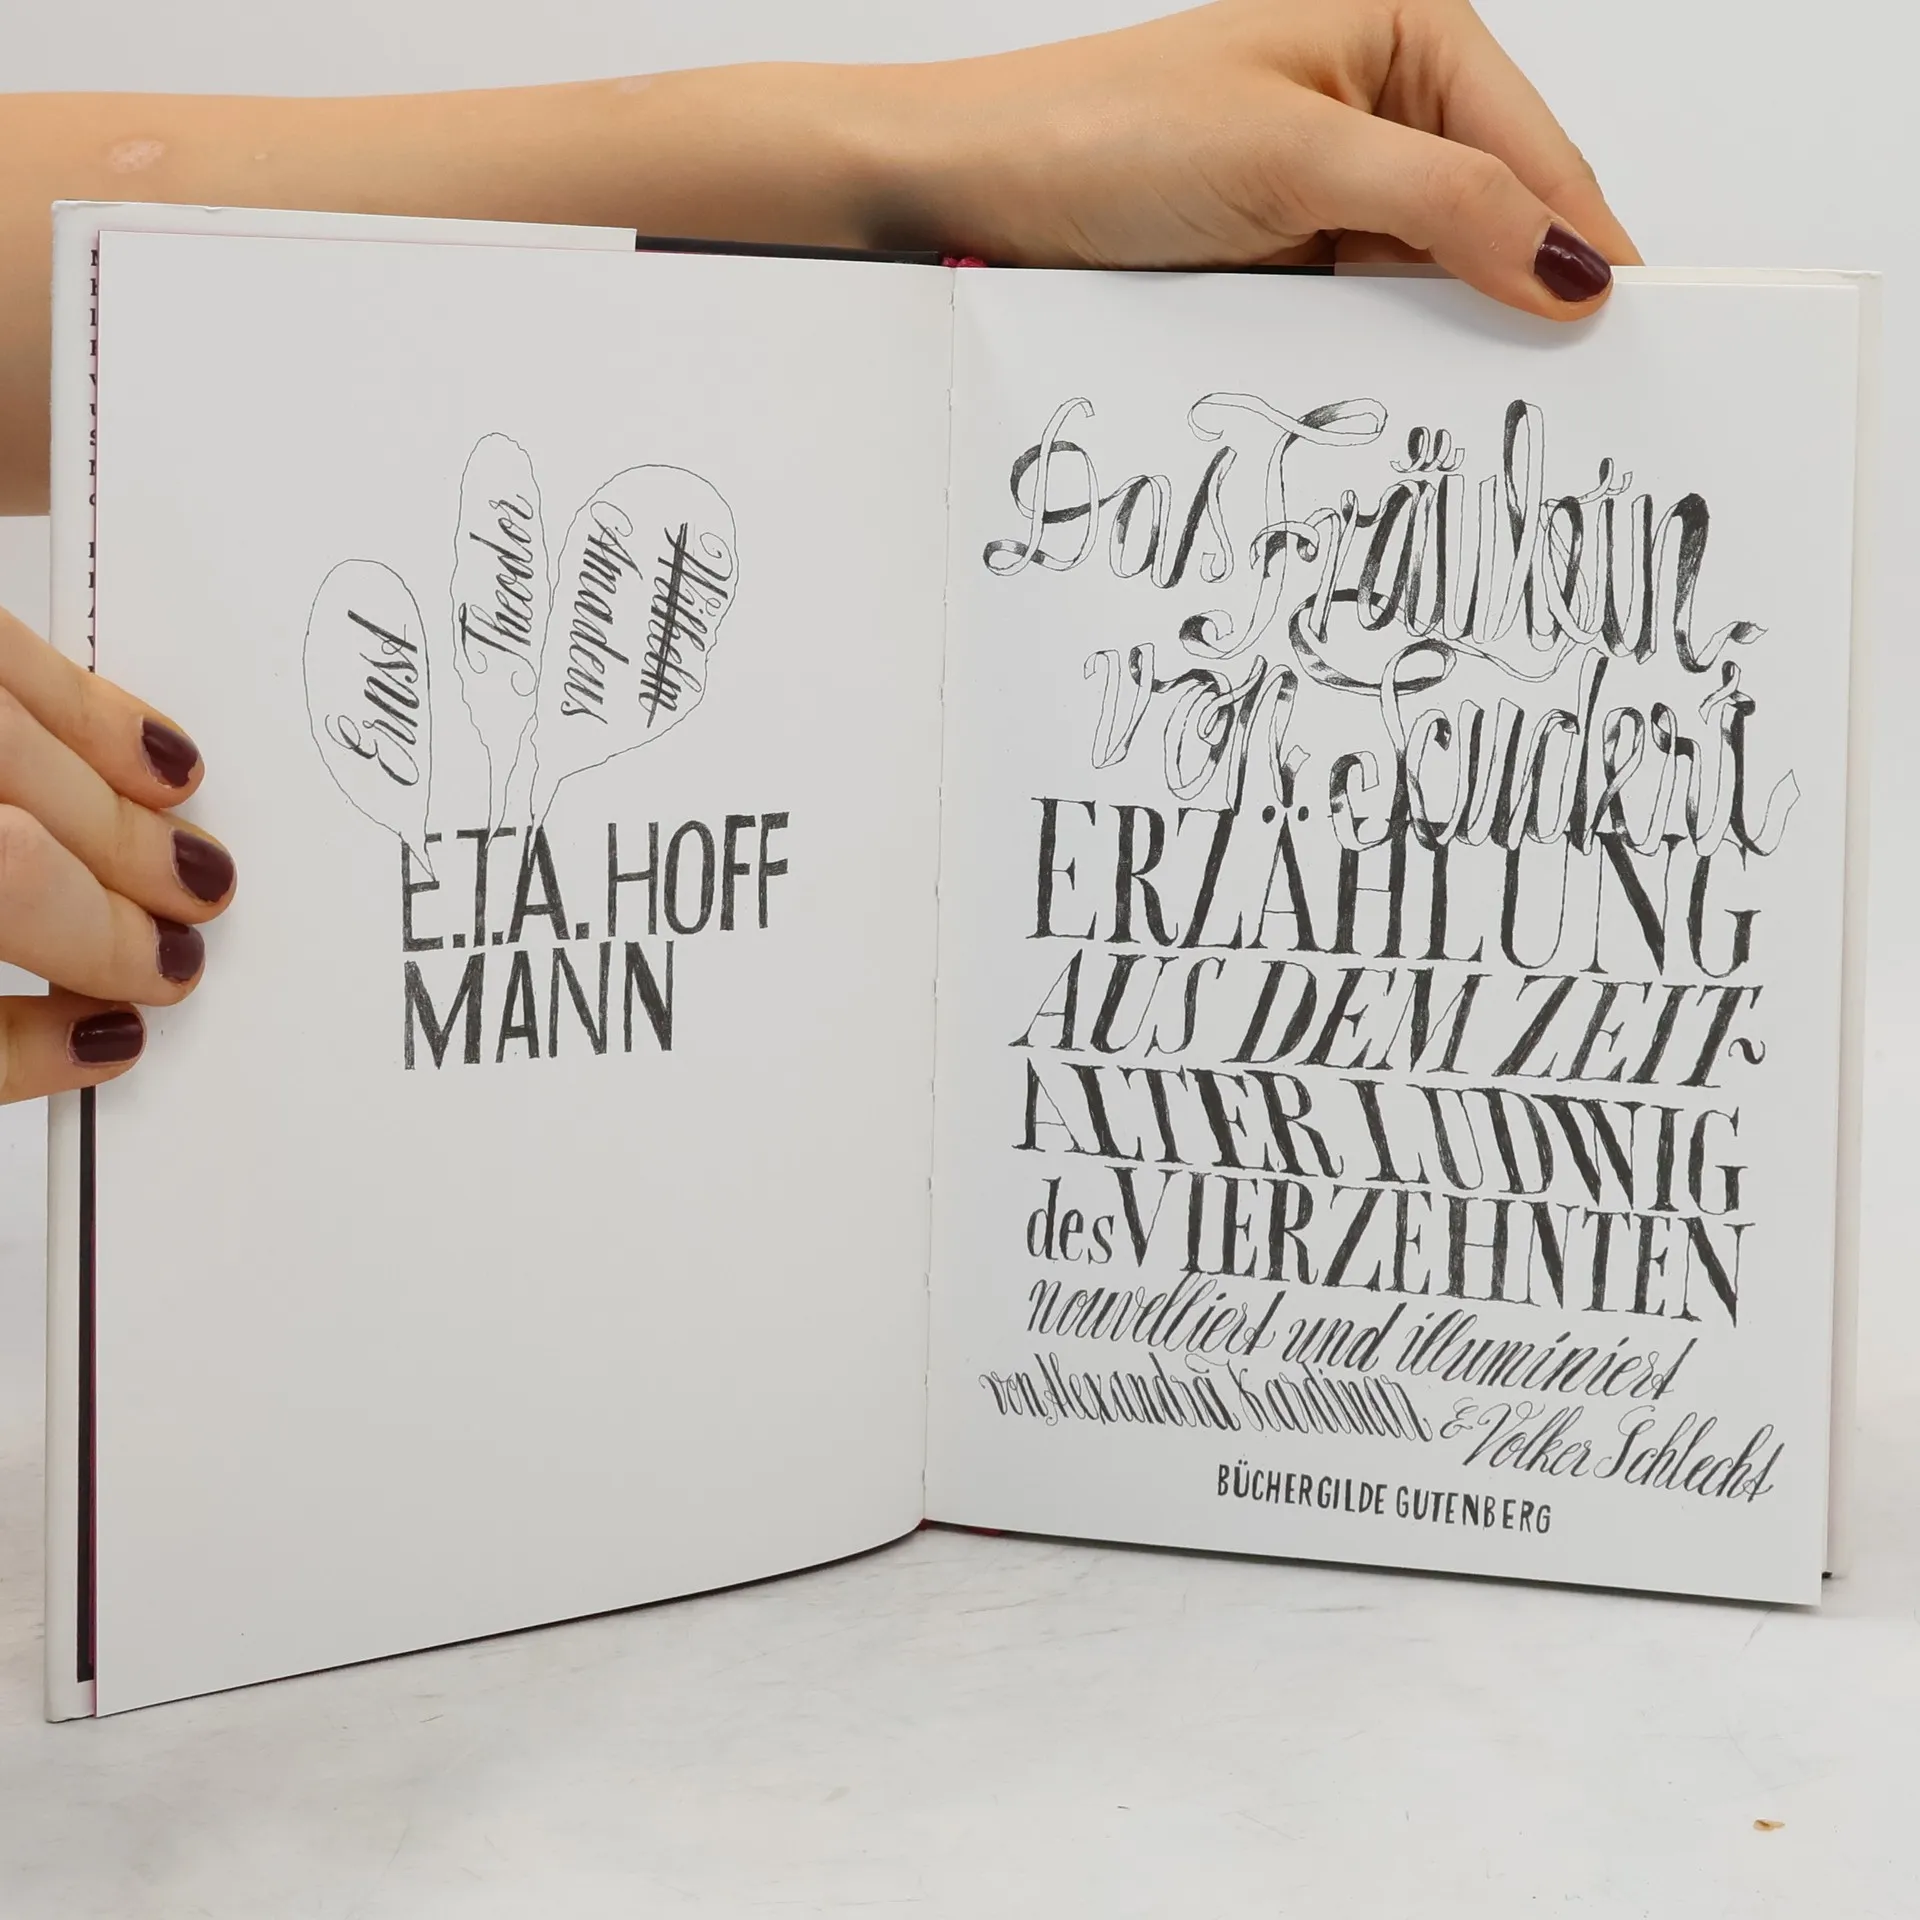 Ernst
Theodor
Amadeus
Wilhelm
E.T.A. HOFF
MANN
Das Fräulein
von Scuderi
ERZÄHLUNG
AUS DEM ZEIT-
ALTER LUDWIG
des VIERZEHNTEN
nouvelliert und illuminiert
von Alexandra Kardinar & Volker Schlecht
BÜCHERGILDE GUTENBERG